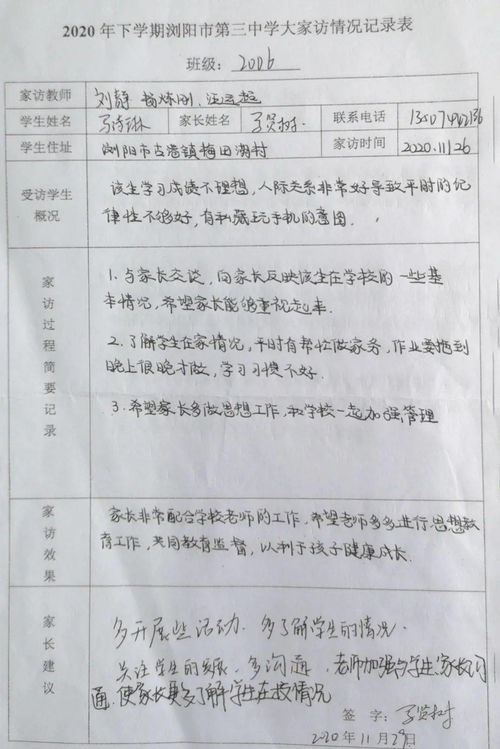 2020年下学期浏阳市第三中学大家访情况记录表
班级：2006
家访教师 刘静
学生姓名 家长姓名 联系电话
学生住址 浏阳市古港镇梅田湖村 家访时间 2020.11.26
受访学生概况 该生学习成绩不理想，人际关系非常好导致平时的纪
律性不够好，有私藏玩手机的意图．
家访过程简要记录
1．与家长交谈，向家长反映该生在学校的一些基
本情况，希望家长能够重视起来．
2．了解学生在家情况，平时有帮忙做家务，作业要拖到
晚上很晚才做，学习习惯不好．
3．希望家长多做思想工作，和学校一起加强管理
家访效果 家长非常配合学校老师的工作，希望老师多多进行思想教
育工作，共同教育监督，以利于孩子健康成长．
家长建议 多开展些活动．多了解学生的情况．
关注学生的发展，多沟通，老师加强与学生、家长沟
通，使家长更多了解学生在校情况
签字：
2020年11月29日